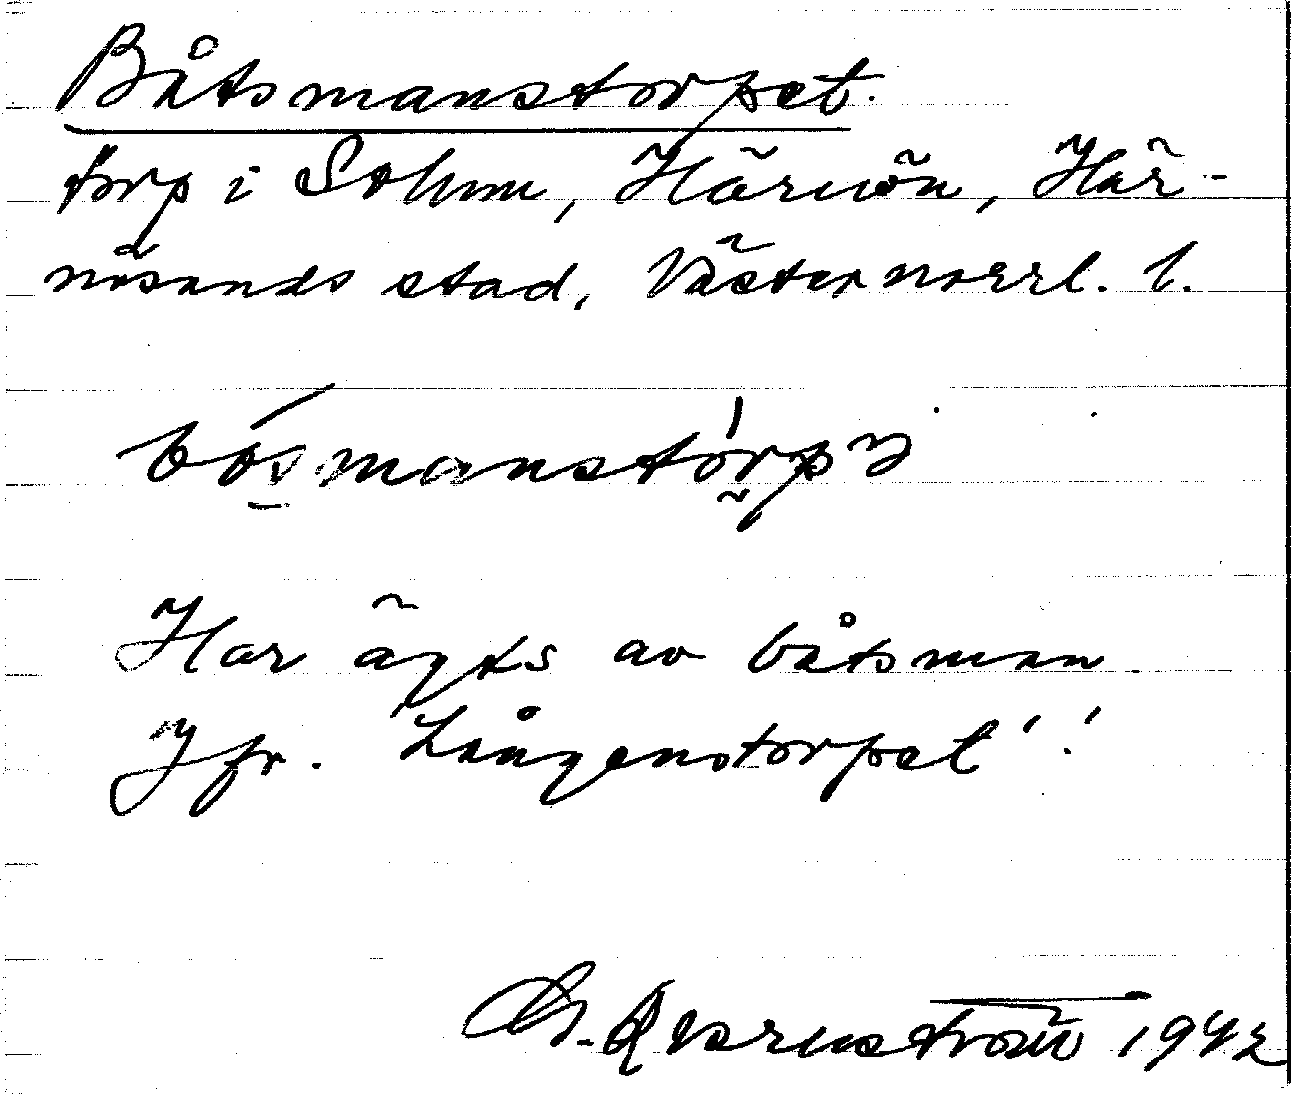 Båtsmanstorpet.
torp i Solum, Härnön, Här-
nösands stad, Västernorrl. l.
Har ägts av båtsman.
Jfr. "Långenstorpet"!
Qvarnström 1942